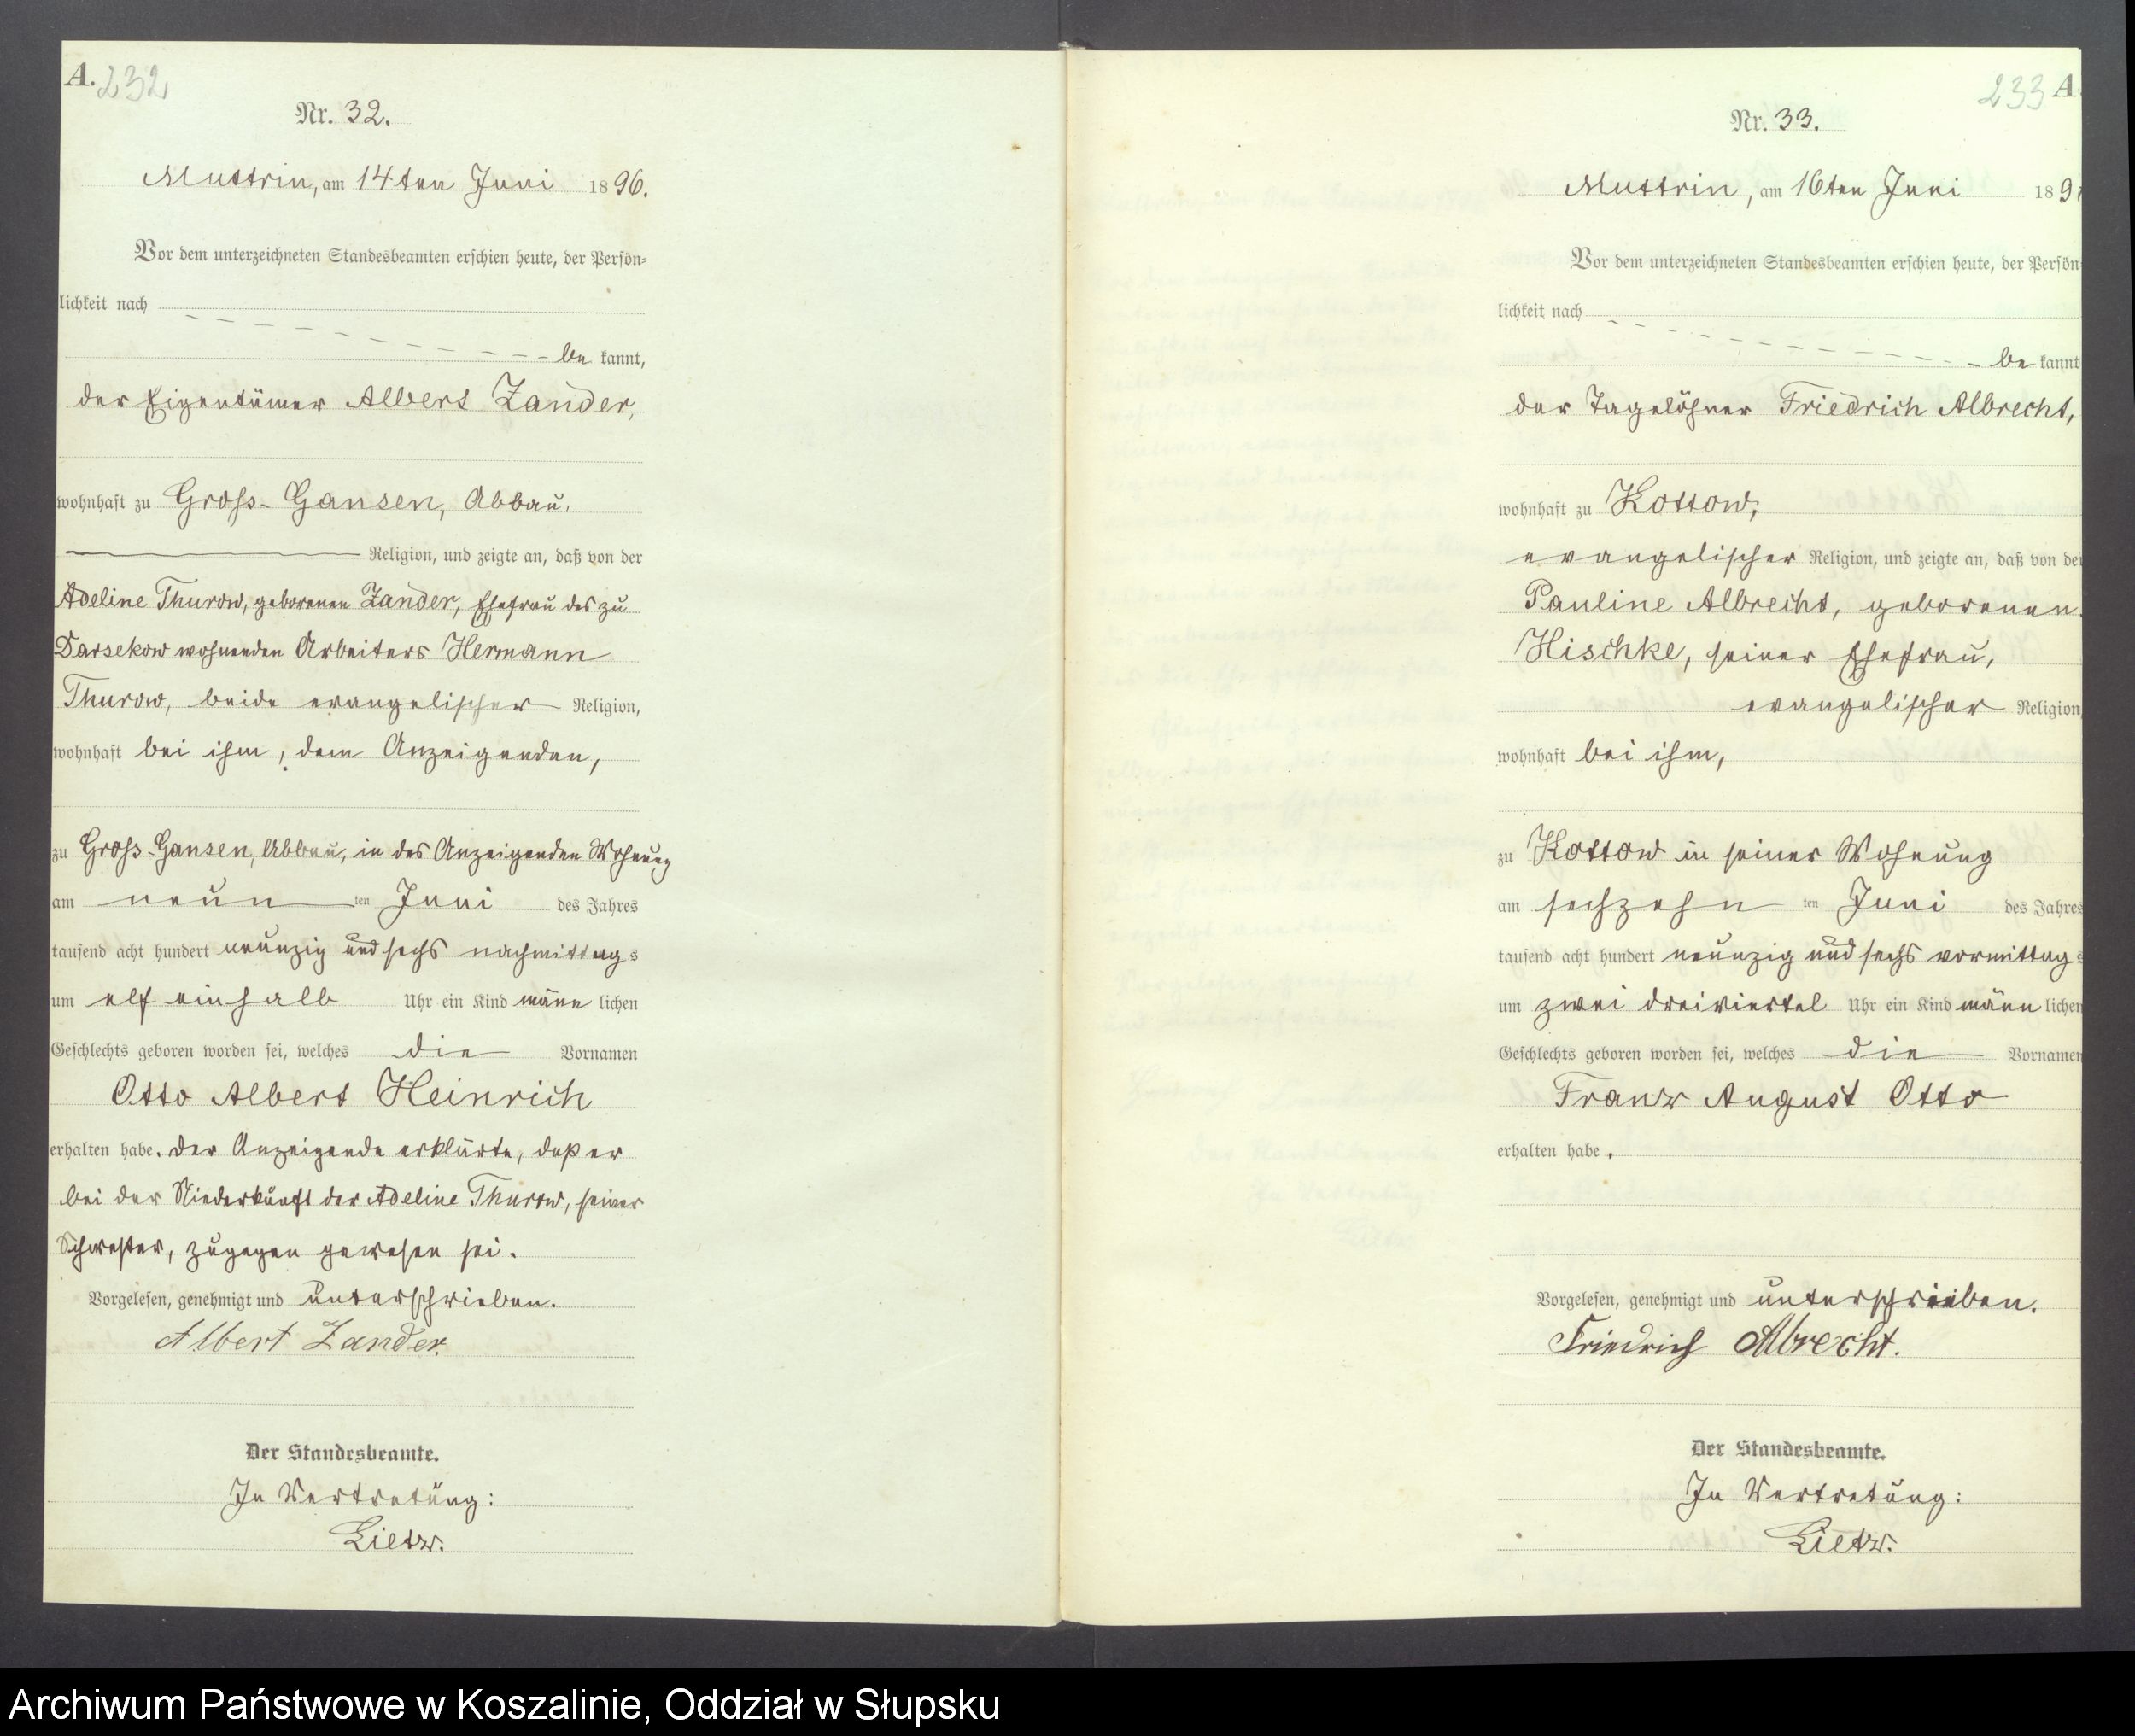 A. 232
Nr. 32.
Muttrin, am 14ten Juni 1896.
Vor dem unterzeichneten Standesbeamten erschien heute, der Persön=
lichkeit nach
be kannt,
der Eigentümer Albert Zander,
wohnhaft zu Gross-Gansen, Abbau,
Religion, und zeigte an, daß von der
Adeline Thurow, geborenen Zander, Ehefrau des zu
Darsekow wohnenden Arbeiters Hermann
Thurow, beide evangelischer Religion,
wohnhaft bei ihm, dem Anzeigenden,
zu Gross-Gansen, Abbau, in des Anzeigenden Wohnung
am neun ten Juni des Jahres
tausend acht hundert neunzig und sechs nachmittags
um elf einhalb Uhr ein Kind männlichen
Geschlechts geboren worden sei, welches die Vornamen
Otto Albert Heinrich
erhalten habe. Der Anzeigende erklärte, daß er
bei der Niederkunft der Adeline Thurow, seiner
Schwester, zugegen gewesen sei.
Vorgelesen, genehmigt und unterschrieben.
Albert Zander.
Der Standesbeamte.
In Vertretung:
Lietz.
233 A.
Nr. 33.
Muttrin, am 16ten Juni 189
Vor dem unterzeichneten Standesbeamten erschien heute, der Persön
lichkeit nach
be kannt
der Tagelöhner Friedrich Albrecht,
wohnhaft zu Kottow,
evangelischer Religion, und zeigte an, daß von der
Pauline Albrecht, geborenen
Hischke, seiner Ehefrau,
evangelischer Religion,
wohnhaft bei ihm,
zu Kottow in seiner Wohnung
am sechzehn ten Juni des Jahres
tausend acht hundert neunzig und sechs vormittags
um zwei dreiviertel Uhr ein Kind männlichen
Geschlechts geboren worden sei, welches die Vornamen
Franz August Otto
erhalten habe.
Vorgelesen, genehmigt und unterschrieben.
Friedrich Albrecht.
Der Standesbeamte.
In Vertretung:
Lietz.
Archiwum Państwowe w Koszalinie, Oddział w Słupsku